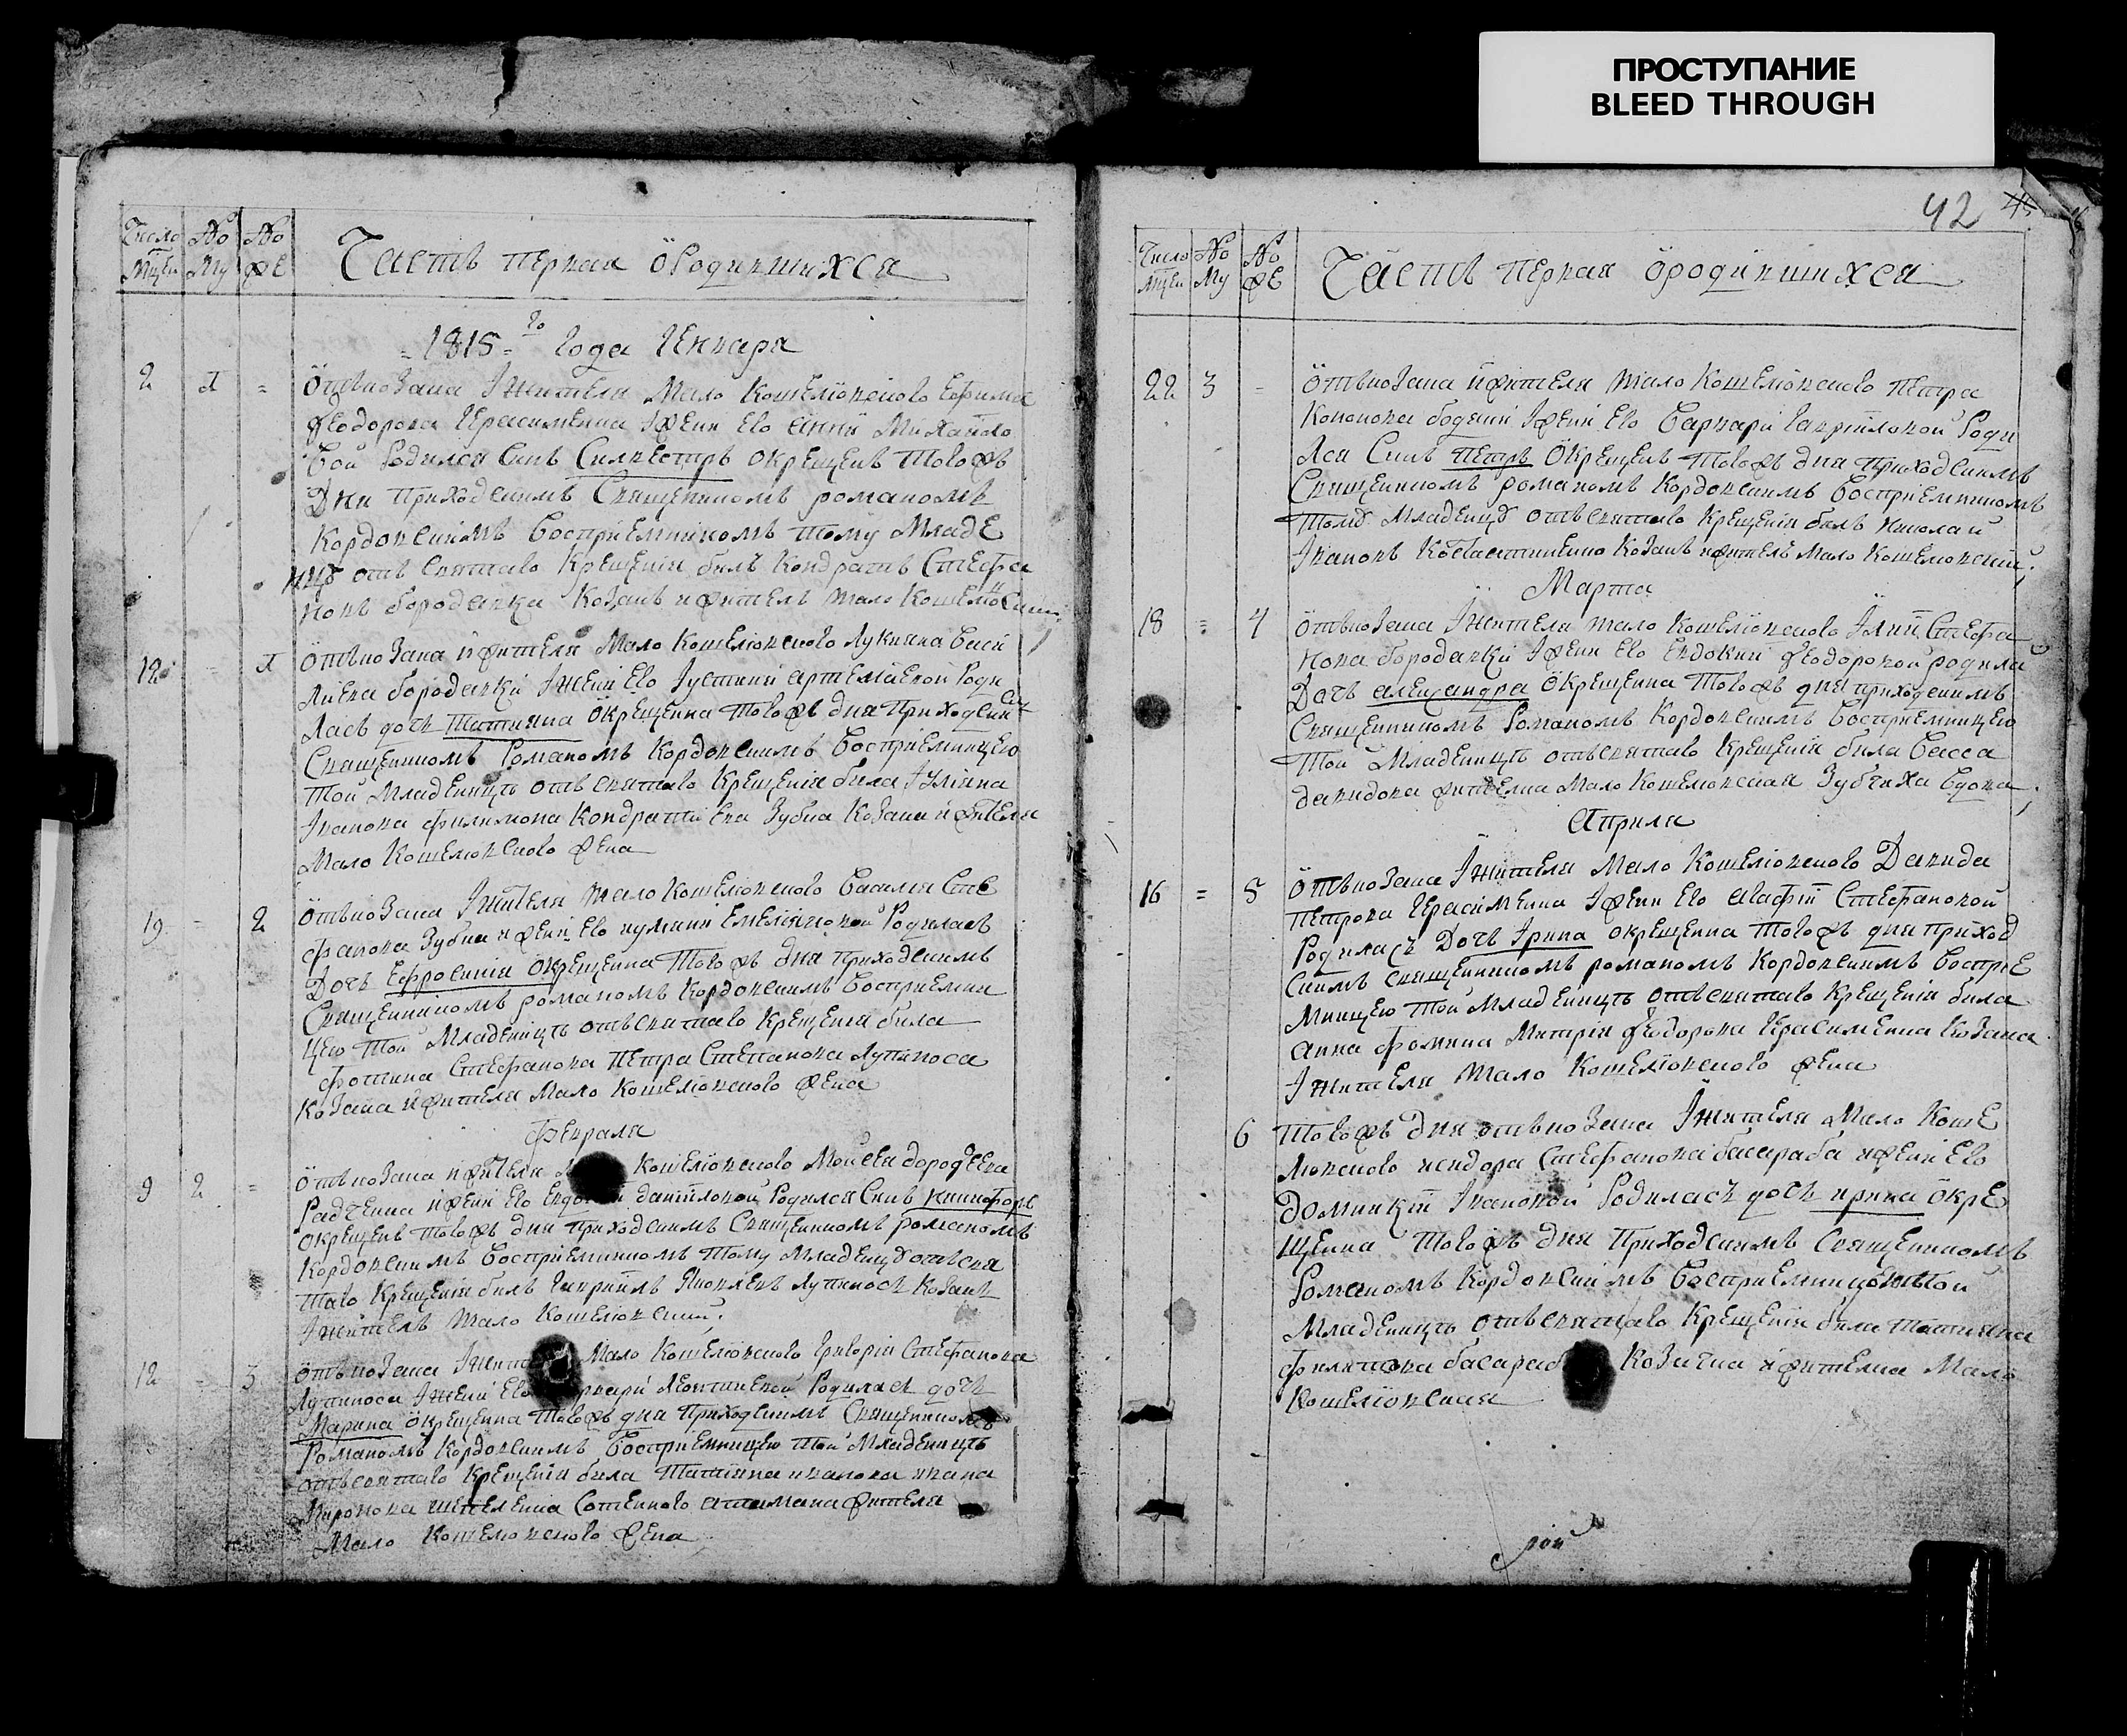 ПРОСТУПАНИЕ
BLEED THROUGH
42
Число No No
Мцеи Му ЖЕ
Часть первая о Родившихся
1815го Года Генваря
2 1 =
Отъ козака Iжителя Мало Кошелювского Ефима
Феодорова Герасименка Iжени Его Анни Михайло
вой Родился Синъ Силвестръ окрещенъ Того жъ
Дня приходскимъ Священикомъ романомъ
Кордовскимъ Восприемникомъ тому Младе
нцу отъ Святаго Крещенія билъ Кондратъ Стефа
новъ бородавка Козакъ и житель мало Кошелювский
12 = 1
Отъ козака и жителя Мало Кошелювского Лукияна Васи
лиева бородавки Iжени Его Iустини артемиевой Роди
лась дочь Татияна окрещенна Того жъ дня Приходским
Священикомъ Романомъ Кордовскимъ Восприемницею
Той Младеницъ отъ святаго Крещенія била Iулiана
Iванова филимона Кондратiева Зубка Козака и жителя
Мало Кошелювского жена
19 = 2
Отъ козака Iжителя мало Кошелювского Василия Сте
фанова Зубка и жени Его Емелiяновой Родилась
Дочь Ефросинiя окрещенна Того жъ дня приходскимъ
Священникомъ романомъ Кордовскимъ Восприемни
цею той Младеницъ отъ святаго Крещения била
Фотина Стефанова Петра Степанова Лупиноса
Козака и жителя Мало Кошелювского жена
Февраля
9 2 =
Отъ козака и жителя Кошелювского Мойсея
Радченка и жени Его даниловой Родился Синъ никифоръ
окрещенъ того жъ дня приходскимъ Священникомъ романомъ
Кордовскимъ Восприемникомъ тому Младенцу отъ свя
таго Крещенiя билъ Гавриилъ Яковлевъ Лупиносъ Козакъ
Iжитель мало Кошелювский;
12 = 3
Отъ козака Мало Кошелювского Григорiя Стефанова
Лупиноса Iжени Его Леонтиевой Родилась дочь
Марина окрещенна того жъ дня приходскимъ Священникомъ
Романомъ Кордовскимъ Восприемницею той Младеницъ
отъ святаго Крещенiя била Татiяна иванова ивана
Миронова Сотенного атамана жителя
Мало Кошелювского жена
Число No No
Мцеи Му ЖЕ
Часть первая о родившихся
22 3 =
Отъ козака и жителя мало Кошелювского Петра
Кононова Iжени Его Варвари Гаврииловой Роди
лся Синъ петръ окрещенъ того жъ дня приходскимъ
Священникомъ романомъ Кордовскимъ Восприемникомъ
тому Младенцу отъ святаго Крещенiя билъ Николай
Iвановъ Козакъ и житель Мало Кошелювский;
Марта
18 = 4
Отъ козака Iжителя мало Кошелювского Стефа
нова бородавки Iжени Его Евдокии Феодоровой родила
Дочь александра окрещенна того жъ дня приходскимъ
Священникомъ Романомъ Кордовскимъ Восприемницею
той Младеницъ отъ святаго Крещенiя била Васса
давидова жителка Мало Кошелювская Зубчиха Вдова;
Априля
16 = 5
Отъ козака Iжителя Мало Кошелювского Давида
петрова Герасименка Iжени Его Агафiи Стефановой
Родилась Дочь Iрина окрещенна того жъ дня приход
скимъ священникомъ романомъ Кордовскимъ Восприе
мницею той Младеницъ отъ святаго Крещенiя била
анна фомина Митрiя Феодорова Герасименка Козака
Iжителя Мало Кошелювского жена
6
Того жъ дня отъ козака Iжителя Мало Коше
лювского исидора Стефанова басараба и жени Его
Домникiи Iвановой Родилась дочь ирина окре
щенна того жъ дня Приходскимъ Священикомъ
Романомъ Кордовскимъ Восприемницею той
Младеницъ отъ святаго Крещенiя била татияна
Козачка и жителка Мало
Кошелювская